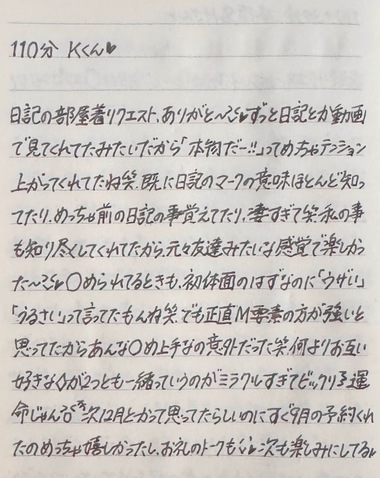 110分 Kくん♥
日記の部屋着リクエスト、ありがと〜💕ずっと日記とか動画
で見てくれてたみたいだから「本物だー!!」ってめちゃテンション
上がってくれてたね笑 既に日記のマークの意味ほとんど知っ
てたり、めっちゃ前の日記の事覚えてたり、凄すぎて笑 私の事
も知り尽くしてくれてたから、元々友達みたいな感覚で楽しかっ
た〜💕♥〇められてるときも、初体面のはずなのに「ウザい」
「うるさい」って言ってたもんね笑 でも正直M要素の方が強いと
思ってたからあんな〇め上手なの意外だった笑 何よりお互い
好きな◇が2つとも一緒っていうのがミラクルすぎてビックリ 運
命じゃん 次12月とかって思ってたらしいのにすぐ9月の予約くれ
たのめっちゃ嬉しかったし、お礼のトークも 次も楽しみにしてる♥